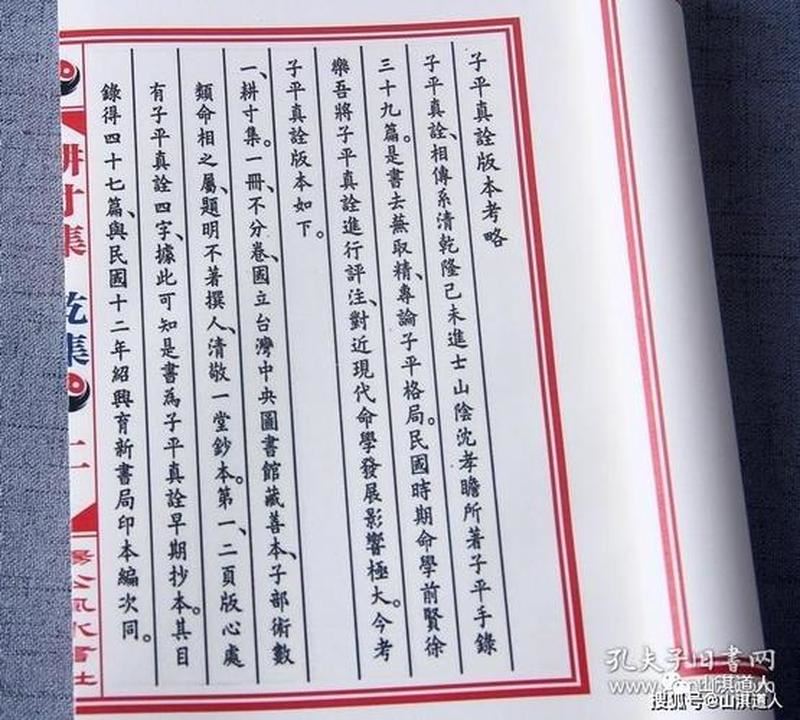 子平真詮版本考略
子平真詮、相傳系清乾隆己未進士山陰沈孝瞻所著子平手錄
三十九篇。是書去蕪取精、專論子平格局。民國時期命學前賢徐
樂吾將子平真詮進行評注、對近現代命學發展影響極大。今考
子平真詮版本如下。
一、耕寸集。一冊、不分卷、國立台灣中央圖書館藏善本、子部術數
類命相之屬、題明不著撰人、清敬一堂鈔本。第一、二頁版心處
有子平真詮四字、據此可知是書為子平真詮早期抄本。其目
錄得四十七篇、與民國十二年紹興育新書局印本編次同。
耕寸集 乾集 二
楊公風水書社
孔夫子旧书网
山淇道人
搜狐号@山淇道人